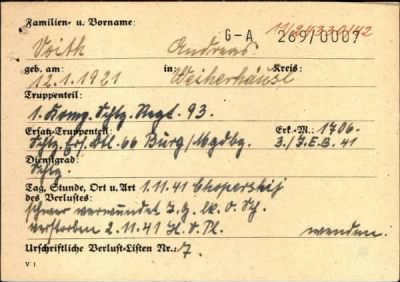 Familien- u. Vorname:
G-A 289/0007
Voith Andreas
geb. am: in: Kreis:
12.1.1921 Weiherhäusl
Truppenteil:
1. Komp. Schtz. Regt. 93.
Ersatz-Truppenteil: Erk.-M.: 1706.
Schtz. Ers. Btl. 66 Burg/Mgdbg. 3./I.E.B. 41
Dienstgrad:
Schtz.
Tag, Stunde, Ort u. Art 1.11.41
des Verlustes:
schwer verwundet I.G. lk. O. Sch.
verstorben 2.11.41 H.V.Pl. wenden.
Urschriftliche Verlust-Listen Nr.: 7.
V 1